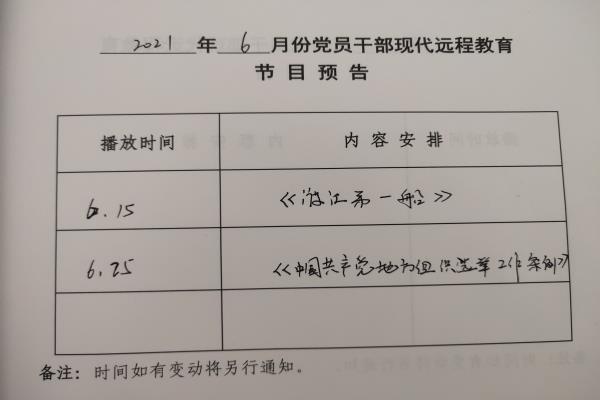 2021年6月份党员干部现代远程教育
节目预告
播放时间 内容安排
6.15 《渡江第一船》
6.25 《中国共产党地方组织选举工作条例》
备注：时间如有变动将另行通知。